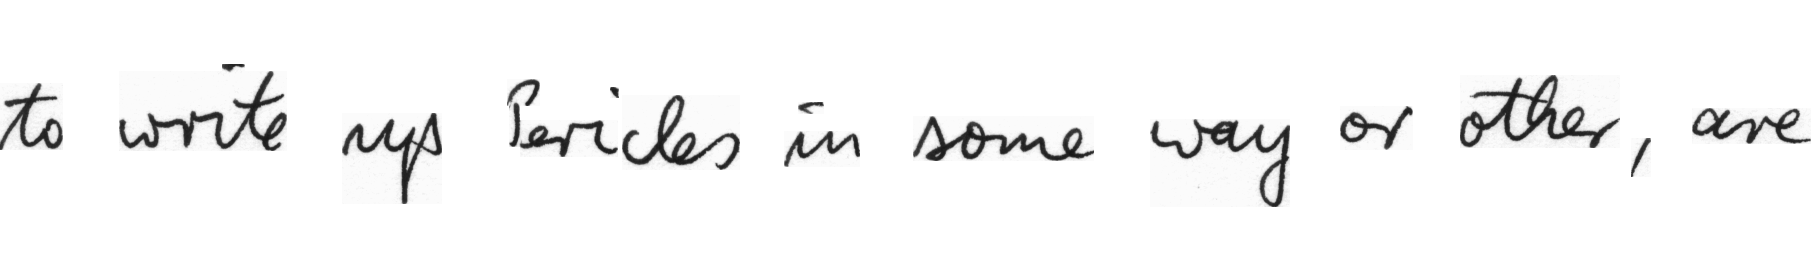 to write up Pericles in some way or other, are